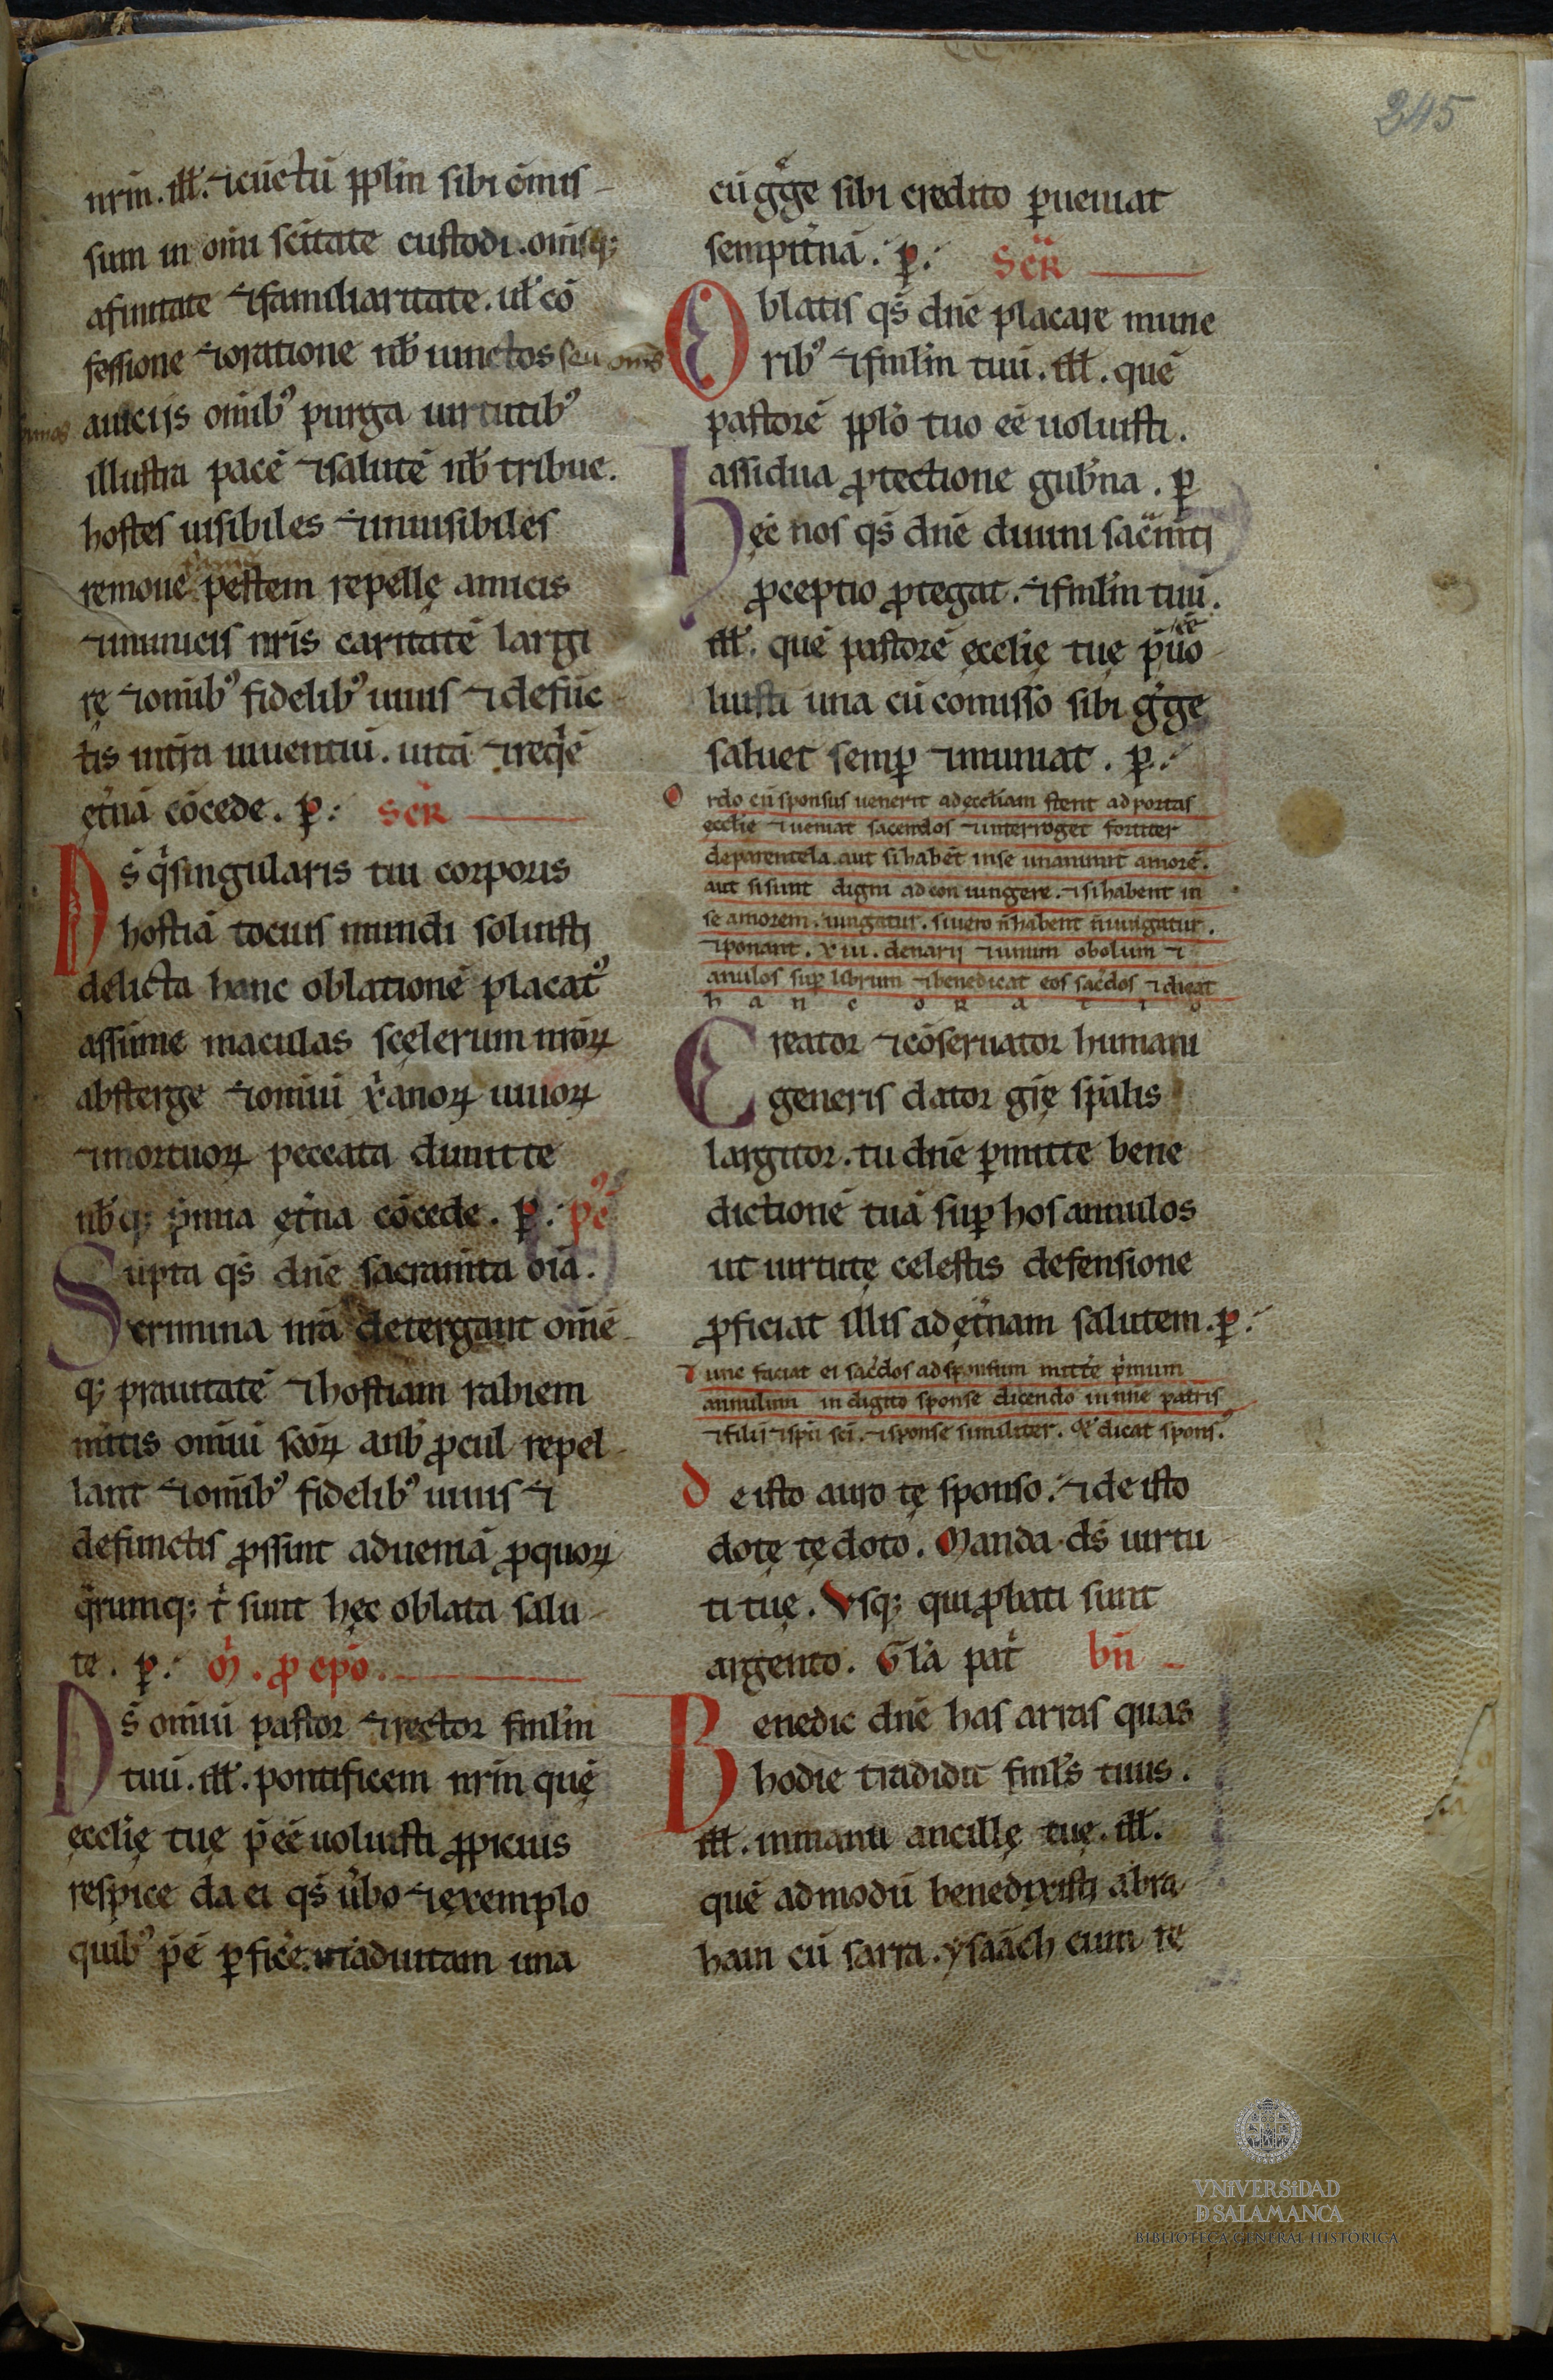 245
nrm̄. ill̄. ⁊ cūctū pplm̄ sibi c̄mis
sum in om̄i sc̄itate custodi. om̄isq;
afinitate ⁊ familiaritate. ul̄ cō
fessione ⁊ oratione nb̄ iunctos seu om̄s
a uiciis om̄ib᾽ purga uirtutib᾽
illustra pacē ⁊ salutē nb̄ tribue.
hostes uisibiles ⁊ inuisibiles
remoue pestem repellę amicis
⁊ inimicis nr̄is caritatē largi
rę ⁊ om̄ib᾽ fidelib᾽ uiuis ⁊ defūc
tis in tr̄a uiuentiū. uitā ⁊ req̄ē
ęt̄nā cōcede. p̱. Sec̄r
Ds̄ q̄ singularis tui corporis
hostiā tocius mundi soluisti
delicta hanc oblationē placat᾽
assume maculas scęlerum nr̄oꝝ
absterge ⁊ om̄iū xp̄ianoꝝ uiuoꝝ
⁊ mortuoꝝ peccata dimitte
nb̄q; p̄mia ęt̄na cōcede. p̱. pc̄
Sūpta qs̄ dn̄e sacram̄ta oīā.
crimina nr̄ā detergant om̄ē
q; prauitatē ⁊ hostiam rabiem
m̄itis om̄iū sc̄oꝝ anb᾽ ꝓcul repel
lant ⁊ om̄ib᾽ fidelib᾽ uiuis ⁊
defunctis ꝓssint ad ueniā ꝓ quoꝝ
q̄rumq; t᾽ sunt hęc oblata salu
te. p̱. M̄. ꝓ epō.
Ds̄ om̄iū pastor ⁊ rector fml̄m
tuū. ill̄. pontificem nrm̄ quę̄
ęcclię tuę p̄ēē uoluisti ꝓpicius
respice da ei qs̄ ūbo ⁊ exemplo
quib᾽ p̄ē ꝑficē. ut ad uitam una
cū gͤge sibi credito ꝑueniat
sempit̄nā. p̱. Sec̄r
Oblatis qs̄ dn̄e placare mune
rib᾽ ⁊ fml̄m tuū. ill̄. quē
pastorē pplō tuo ēē uoluisti.
assidua ꝓtectione gub̄na. p̱
Hęc nos qs̄ dn̄e diuini sac̄m̄ti
ꝑceptio ꝓtegat. ⁊ fml̄m tuū.
ill̄. quē pastorē ęcclię tuę p̄ēē uo
luisti una cū comisso sibi gͤge
saluet semꝑ ⁊ muniat. p̱.
Ordo cū sponsus uenerit ad ęccl̄iam stent ad portas
ęcclie ⁊ ueniat sacerdos ⁊ interroget fortiter
de parentela. aut si habēt in se unanimit̄ amorē.
aut si sunt digni ad coniungere. ⁊ si habent in
se amorem. iungatur. si uero n̄ habent n̄ iungatur.
⁊ ponant. xiii. denarij ⁊ unum obolum ⁊
anulos suꝑ librum ⁊ benedicat eos sac̄dos ⁊ dicat
h a n c o r a t i o
Creator ⁊ cōseruator humani
generis dator gr̄ę spīalis
largitor. tu dn̄e ꝑmitte bene
dictionē tuā suꝑ hos annulos
ut uirtutę celestis defensione
ꝓficiat illis ad ęt̄nam salutem. p̱.
Tunc faciat ei sac̄dos ad sponsum mitt̄e p̄mum
annulum in digito sponse dicendo in nn̄e patris
⁊ filii ⁊ spū sc̄i. ⁊ sponse similiter. ⁊ dicat spons᾽.
De isto auro tę sponso. ⁊ de isto
dotę tę doto. Manda ds̄ uirtu
ti tuę. Vsq; qui ꝓbati sunt
argento. Gl̄a pat̄ bn̄
Benedic dn̄e has arras quas
hodie tradidit fml̄s tuus.
ill̄. in manu ancillę tuę. ill̄.
quē admodū benedixisti abra
ham cū sarra. ysaach cum re
VNIVERSIDAD
D SALAMANCA
BIBLIOTECA GENERAL HISTÓRICA